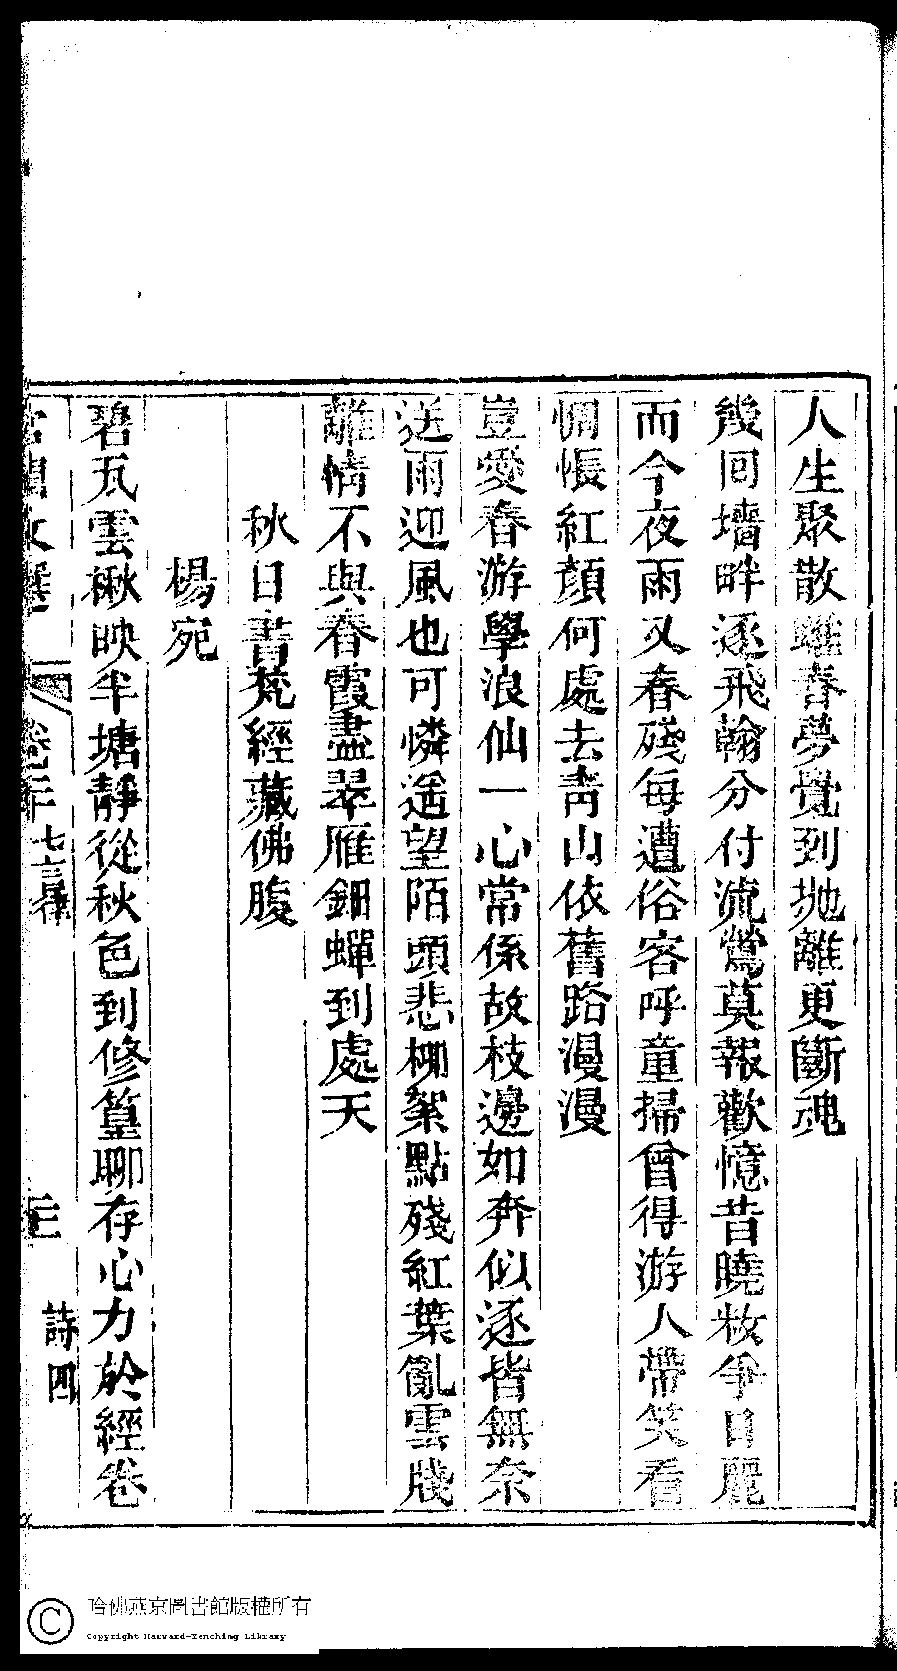 人生聚散雖春夢覺到拋離更斷魂
幾回墻畔逐飛翰分付流鶯莫報歡憶昔曉枚爭日麗
而今夜雨又春殘每遭俗客呼童掃曾得游人帶笑看
惆悵紅顏何處去青山依舊路漫漫
豈愛春游學浪仙一心常係故枝邊如奔似逐皆無奈
送雨迎風也可憐遥望陌頭悲柳絮點殘紅葉亂雲牋
離情不與春霞盡翠雁鈿蟬到處天
秋日書梵經藏佛腹
楊宛
碧瓦雲楸映半塘靜從秋色到修篁聊存心力於經卷
宮閨文選
卷二十
七言律
三
詩四
哈佛燕京圖書館版權所有
Copyright Harvard-Yenching Library